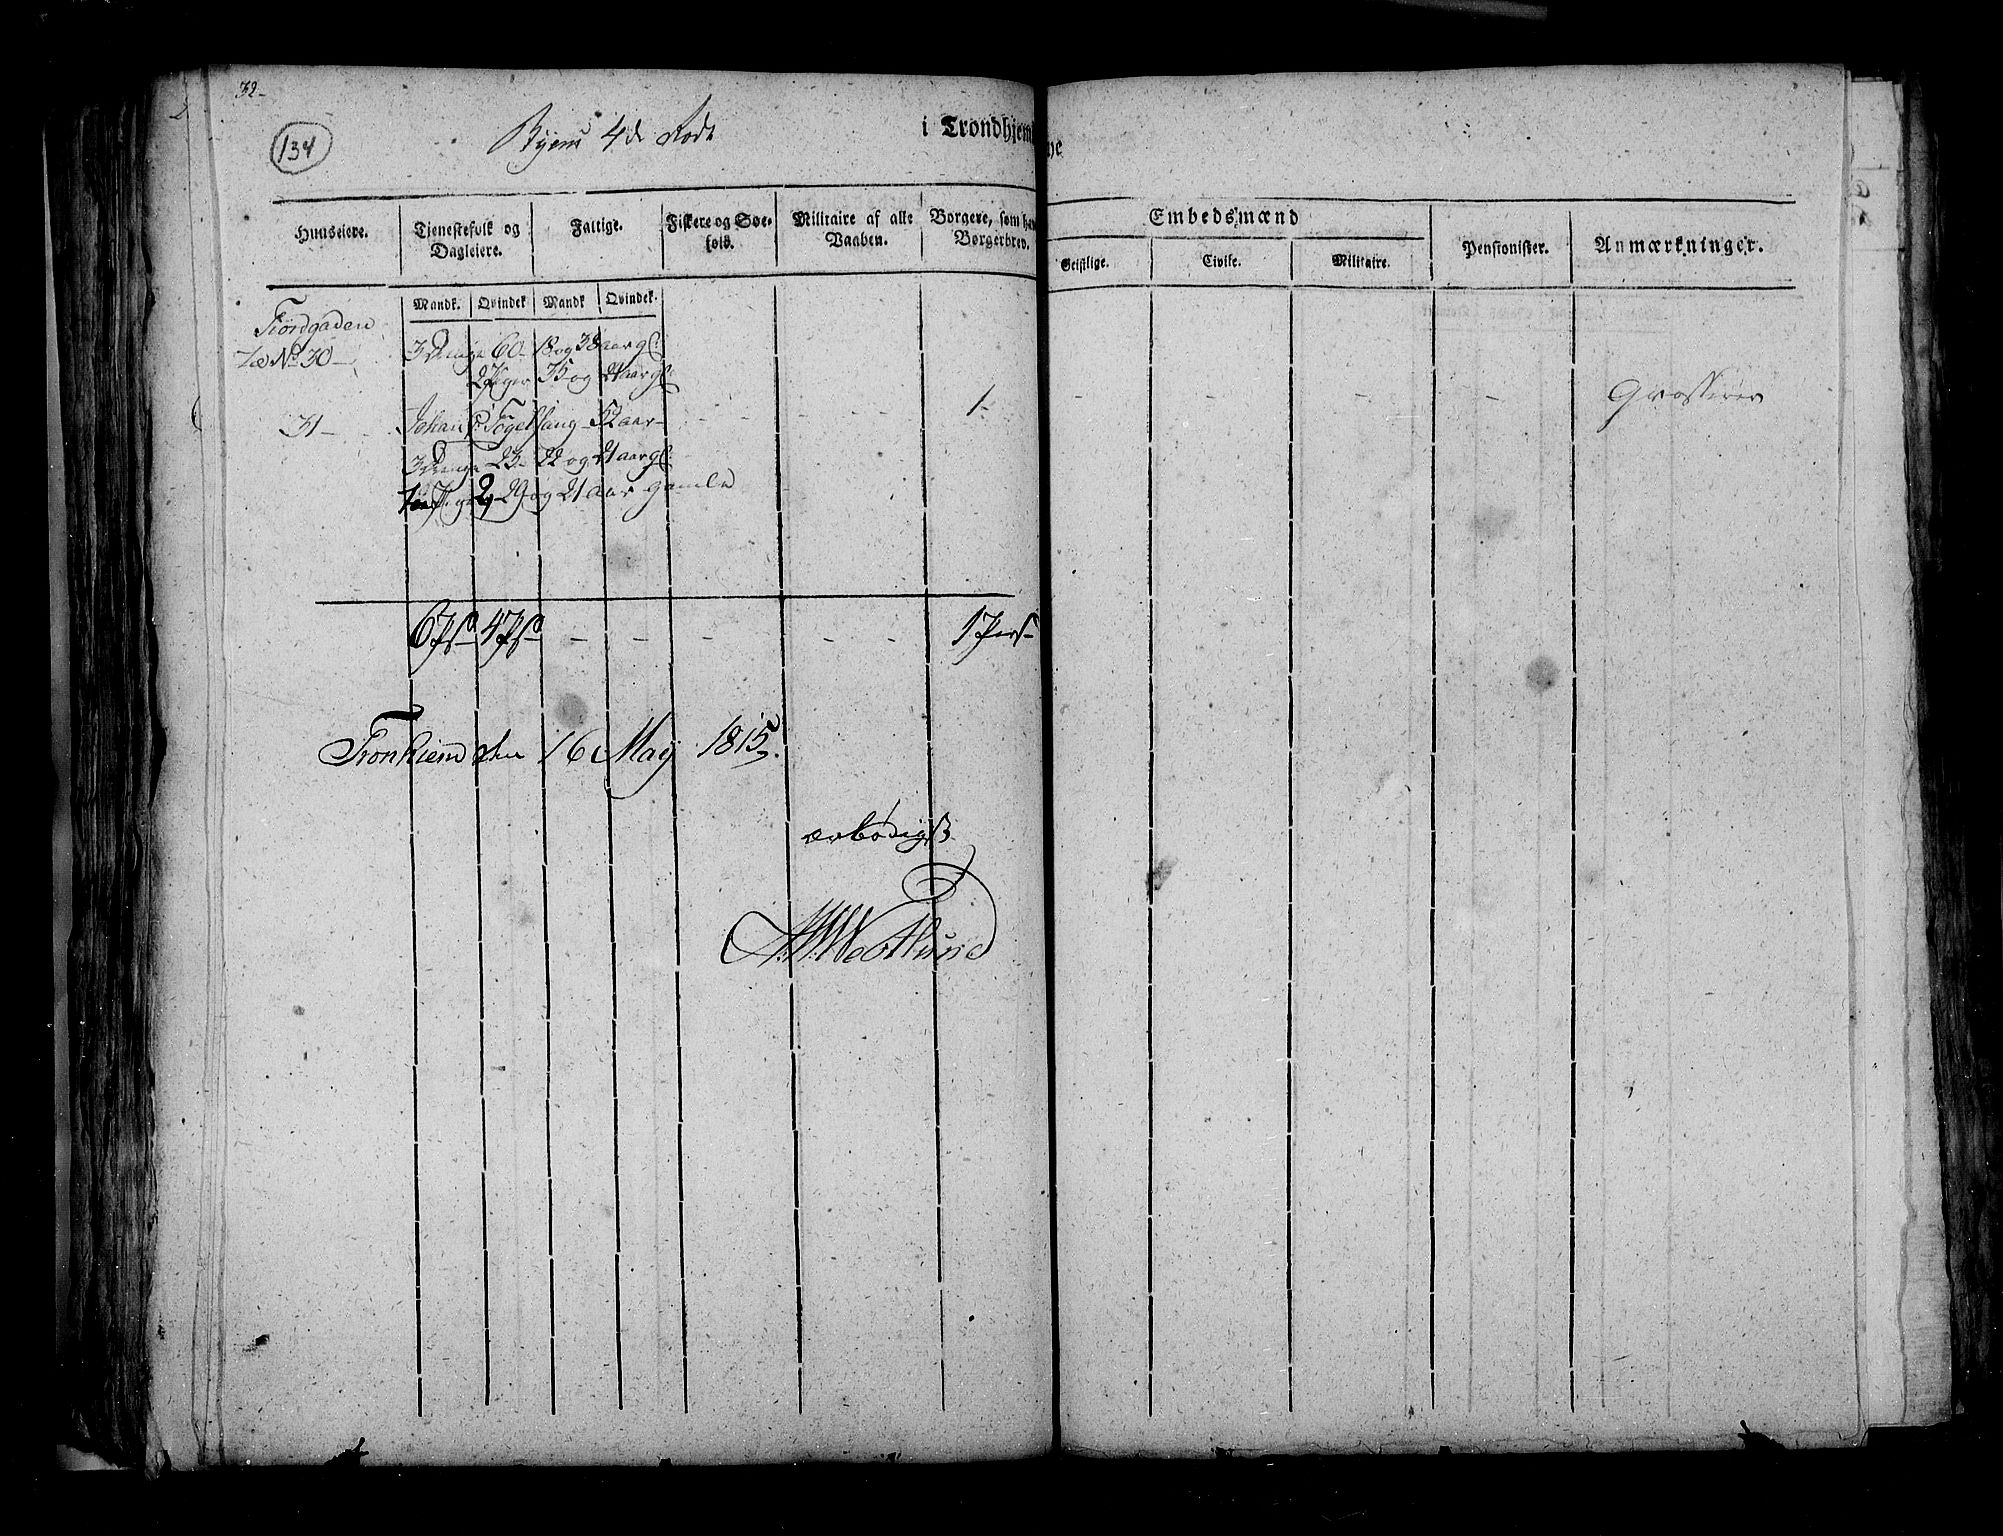 32-
134
Byens 4de Rode
i Trondhjem
ne
Huuseiere.
Tjenestefolk og Dagleiere.
Fattige.
Fiskere og Søefolk.
Militaire af alle Vaaben.
Borgere, som hav
Borgerbrev.
Embedsmænd
Geistlige.
Civile.
Militaire.
Pensionister.
Anmærkninger.
Mandk. Qvindek Mandk Qvindek.
Fiordgaden
No 30
3 Drenge 60- 18 og 38 aar gl:
2 Piger 35 og 21 aar gl:
31
Johan Fogelsang 52 aar
1-
Grosserer
3 Drenge 23- 22 og 21 aar gl:
Piger 2, 29 og 21 aar gamle
6 Ps 4 Ps
1 Pers
Tronhiem den 16 May 1815.
ærbødigst
Westlund